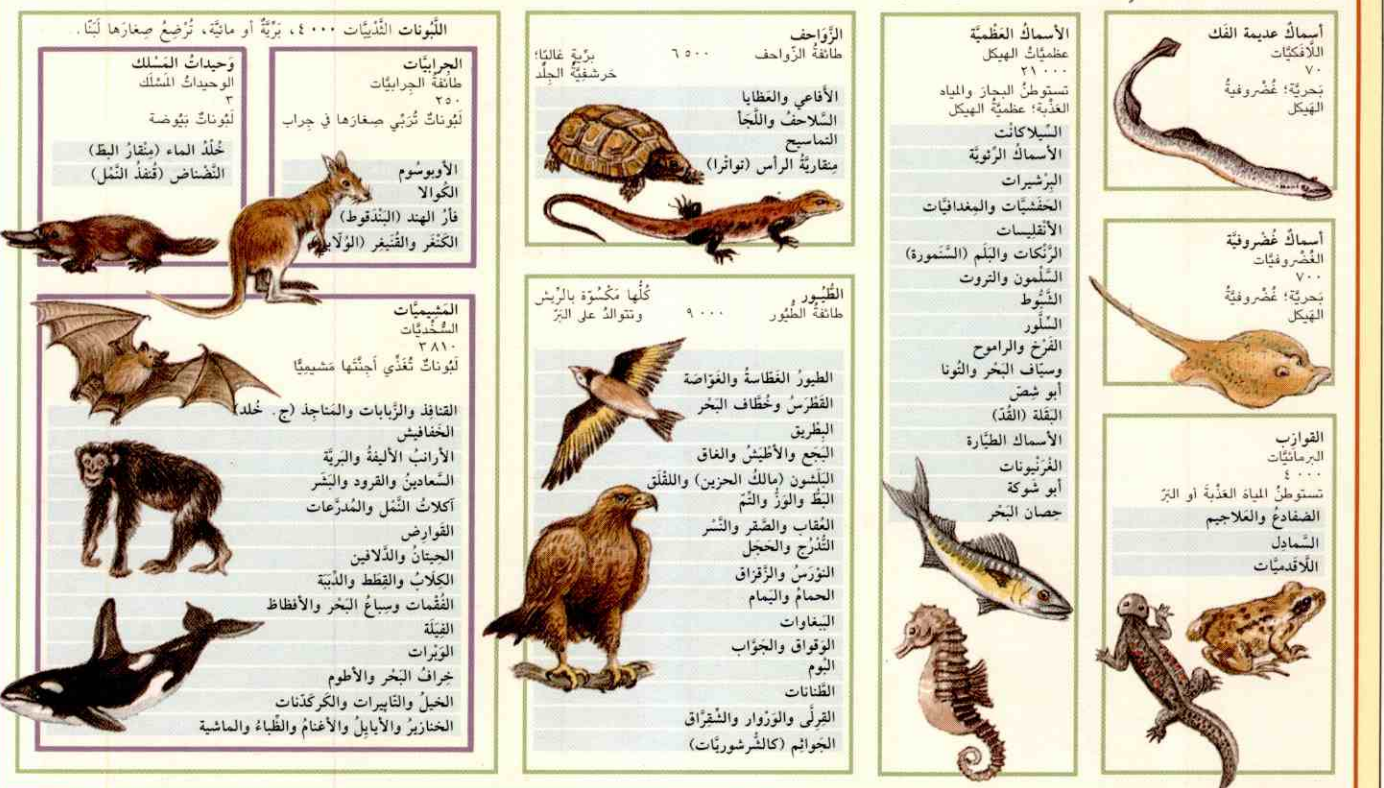 أسماكٌ عديمة الفَك
اللّافَكيَّات
٧٠
بَحريَّة؛ غُضْروفيةُ
الهَيكل
أسماكٌ غُضْروفيَّة
الغُضْروفيَّات
٧٠٠
بَحريَّة؛ غُضْروفيَّةُ
الهَيكل
القوازب
البرمائيَّات
٤٠٠٠
تستوطنُ المياهَ العَذْبةَ أو البَرّ
الضفادعُ والعَلاجيم
السَّمادِل
اللّاقدميَّات
الأسماكُ العَظْميَّة
عظميَّاتُ الهيكل
٢١٠٠٠
تستوطنُ البحارَ والمياه
العَذْبة؛ عظميَّةُ الهيكل
السِّيلاكانْت
الأسماكُ الرِّئويَّة
البِرْشيرات
الحَفَشيَّات والمِغدافيَّات
الأنْقلِيسات
الرَّنْكات والبَلَم (السَّنَمورة)
السَّلْمون والتروت
الشَّبُّوط
السِّلَّور
الفَرْخ والراموح
وسيّاف البَحْر والتُونا
أبو شِصّ
البَقَلة (القُدّ)
الأسماك الطيَّارة
الغُرَنْيونات
أبو شوكة
حِصان البَحْر
الزَّوَاحف
طائفةُ الزّواحف ٦٥٠٠ برِّية غالبًا؛
حَرشفيَّةُ الجِلْد
الأفاعي والعَظايا
السَّلاحفُ واللَّجَأ
التماسيح
مِنقاريَّةُ الرأس (تواترا)
الطُّيُـور كُلُّها مَكْسُوّة بالرِّيش
طائفةُ الطُّيُور ٩٠٠٠ وتتوالدُ على البَرّ
الطيورُ الغَطّاسةُ والغَوّاصة
القَطْرَسُ وخُطَّاف البَحْر
البِطْريق
البَجَع والأطْيَشُ والغاق
البَلَشون (مالكُ الحزين) واللقْلَق
البَطُّ والوَزُّ والتّمّ
العُقاب والصَّقر والنَّسْر
التُّدْرُج والحَجَل
النوْرَسُ والزَّقزاق
الحمامُ واليَمام
الببغاوات
الوَقواق والجَوَّاب
البُوم
الطَّنانات
القِرِلَّى والوَرْوار والشِّقِرَّاق
الجَواثِم (كالشُّرشوريَّات)
اللَّبُونات الثَّدْييَّات ٤٠٠٠، بَرِّيَّةٌ أو مائيَّة، تُرْضِعُ صِغارَها لَبَنًا.
الجِرابيَّات
طائفةُ الجِرابيَّات
٢٥٠
لَبُوناتٌ تُرَبِّي صغارَها في جِراب
الأوبوسُوم
الكُوالا
فأرُ الهند (البَنْدَقوط)
الكَنْغَر والقُنَيغِر
وَحيداتُ المَسْلك
الوحيداتُ المَسْلَك
٣
لَبُوناتٌ بَيُوضة
خُلْدُ الماء (مِنْقارُ البطّ)
النَّضْناض (قُنفذُ النَّمْل)
المَشِيميَّات
السُّخْديَّات
٣٨١٠
لَبُوناتٌ تُغَذِّي أجِنَّتَها مَشيمِيًّا
القنافِذ والزَّبابات والمَناجِذ (ج. خُلد)
الخَفافيش
الأرانبُ الأليفةُ والبَريَّة
السَّعادينُ والقرود والبَشَر
آكلاتُ النَّمْل والمُدرَّعات
القَوارض
الحِيتانُ والدَّلافين
الكِلَابُ والقِطَط والدِّبَبة
الفُقْمات وسِباعُ البَحْر والأفظاظ
الفِيَلَة
الوَبْرات
خِرافُ البَحْر والأطوم
الخيلُ والتّابِيرات والكَركَدّنات
الخنازيرُ والأيايِلُ والأغنامُ والظِّباءُ والماشية